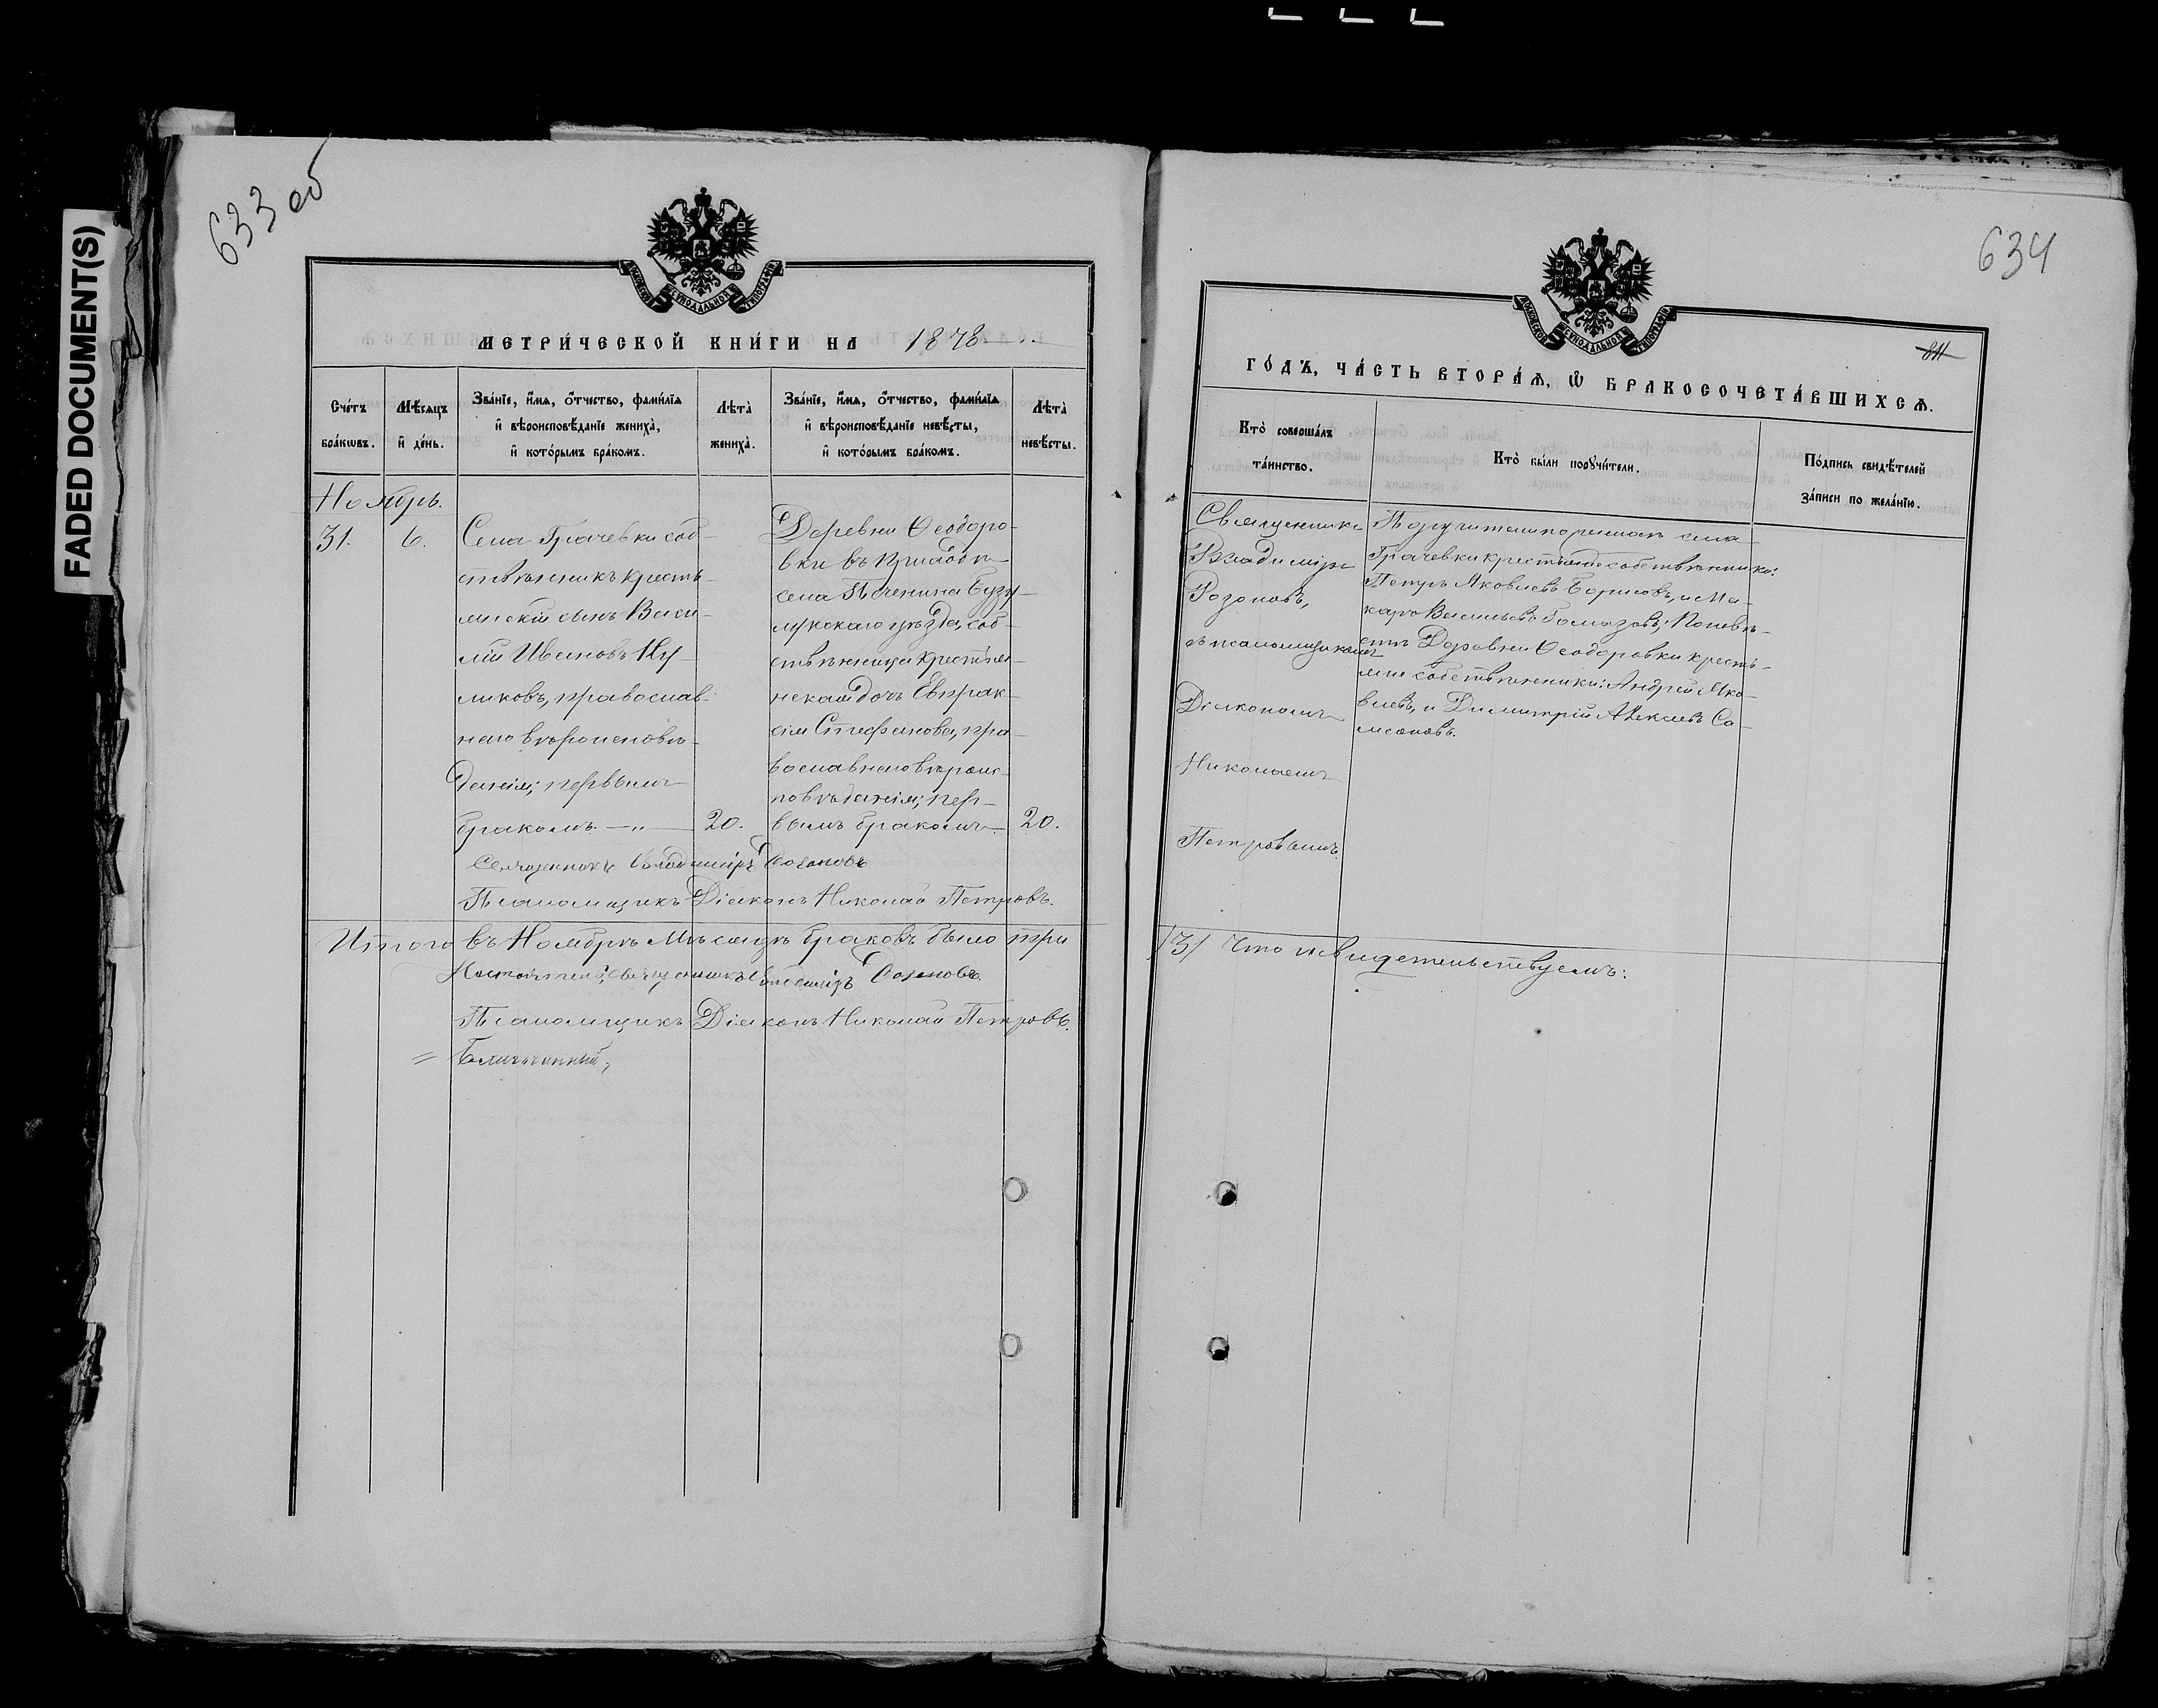 FADED DOCUMENT(S)
633 об
634
811
МОСКОВСКОЙ СѴНОДАЛЬНОЙ ТИПОГРАФІИ
МЕТРИ́ЧЕСКОЙ КНИ́ГИ НА 1878
Сче́тъ бра́кѡвъ.
Мѣ́сяцъ и҆ де́нь.
Зва́нїе, и҆́мѧ, ѻ҆́тчество, фами́лїѧ
и҆ вѣроисповѣ́данїе женихà,
и҆ кото́рымъ бра́комъ.
Лѣтà жениха̀.
Зва́нїе, и҆́мѧ, ѻ҆́тчество, фами́лїѧ
и҆ вѣроисповѣ́данїе невѣ́сты,
и҆ кото́рымъ бра́комъ.
Лѣтà невѣ́сты.
Ноябрь.
31. 6.
Села Грачевки соб-
ственникъ кресть-
янскій сынъ Васи-
лій Ивановъ Ку-
ликовъ, православ-
наго вѣроисповѣ-
данія; первымъ
бракомъ. — " — 20.
Деревни Ѳеодоро-
вки въ приходѣ
села
Бузу-
лукскаго уѣзда, соб-
ственника крестьян-
ская дочь Евпрак-
сія Стефанова, пра-
вославнаго вѣроис-
повѣданія; пер-
вымъ бракомъ. 20.
Священникъ Владиміръ Розоновъ
Псаломщикъ Діяконъ Николай Петровъ.
Итого въ Ноябрѣ Мѣсяцѣ браковъ было три
Настоятель, Священникъ Владиміръ Розоновъ.
Псаломщикъ Діяконъ Николай Петровъ.
= Благочинный,
МОСКОВСКОЙ СѴНОДАЛЬНОЙ ТИПОГРАФІИ
ГО́ДЪ, ЧА́СТЬ ВТОРА́Ѧ, Ѡ҆ БРАКОСОЧЕТА́ВШИХСѦ.
Кто̀ соверша́лъ
та́инство.
Кто̀ бы́ли порꙋчи́тели.
По́дпись свидѣ́телей
за́писи по жела́нїю.
Священникъ
Владиміръ
Розоновъ,
съ псаломщикомъ
Діякономъ
Николаемъ
Петровымъ.
Поручители по женихѣ села
Грачевки крестьяне собственники:
Петръ Яковлевъ Борисовъ, и Ма-
каръ Васильевъ Помазовъ; По невѣ-
стѣ Деревни Ѳеодоровки кресть-
яне собственники: Андрей Яко-
влевъ, и Димитрій Алексѣевъ Са-
мсоновъ.
/3/ Что и свидетельствуемъ: